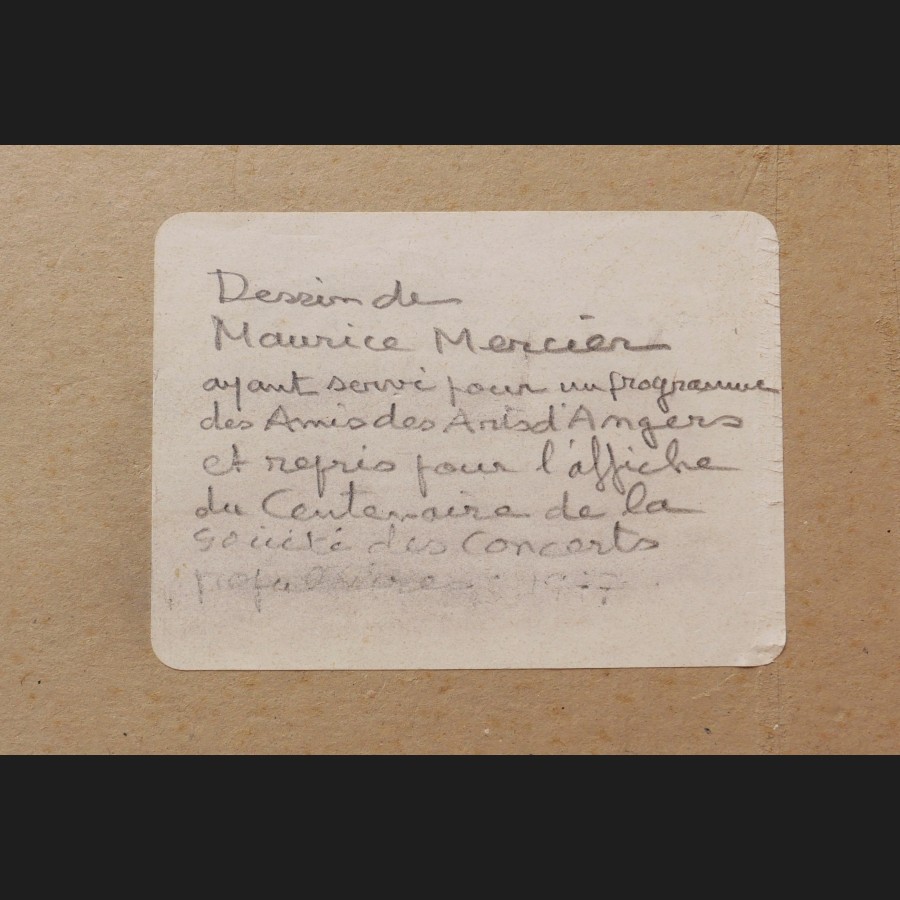 Dessin de
Maurice Mercier
ayant servi pour un programme
des Amis des Arts d'Angers
et repris pour l'affiche
du Centenaire de la
Société des Concerts
populaires